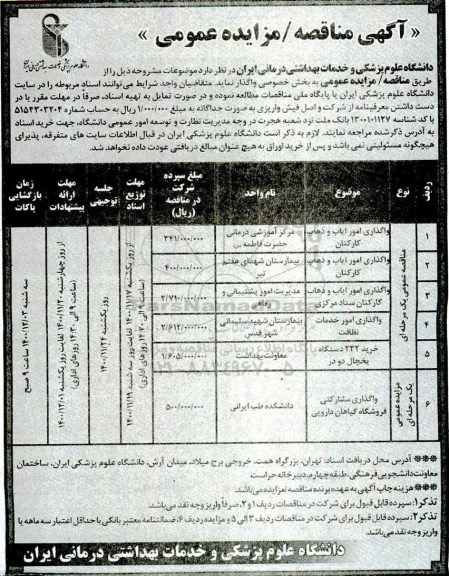 « آگهی مناقصه/مزایده عمومی »
دانشگاه علوم پزشکی و خدمات بهداشتی درمانی ایران
دانشگاه علوم پزشکی و خدمات بهداشتی درمانی ایران در نظر دارد موضوعات مشروحه ذیل را از
طریق مناقصه/ مزایده عمومی به بخش خصوصی واگذار نماید. متقاضیان واجد شرایط می‌توانند اسناد مربوطه را در سایت
دانشگاه علوم پزشکی ایران یا پایگاه ملی مناقصات مطالعه نموده و در صورت تمایل به تهیه اسناد، صرفاً در مهلت مقرر با در
دست داشتن معرفینامه از شرکت و اصل فیش واریزی به صورت جداگانه به مبلغ ۱/۰۰۰/۰۰۰ ریال به حساب شماره ۵۱۵۴۳۰۳۲۰۴
با کد شناسه ۱۳۰۰۱۰۱۱۲۷ بانک ملت نزد شعبه هجرت در وجه مدیریت نظارت و توسعه امور عمومی دانشگاه، جهت خرید اسناد
به آدرس ذکرشده مراجعه نمایند. لازم به ذکر است دانشگاه علوم پزشکی ایران در قبال اطلاعات سایت های متفرقه، پذیرای
هیچگونه مسئولیتی نمی باشد و پس از خرید اوراق به هیچ عنوان مبالغ دریافتی عودت داده نخواهد شد.
ردیف نوع موضوع نام واحد مبلغ سپرده شرکت در مناقصه (ریال) مهلت توزیع اسناد جلسه توجیهی مهلت ارائه پیشنهادات زمان بازگشایی پاکات
۱ واگذاری امور ایاب و ذهاب کارکنان مرکز آموزشی درمانی حضرت فاطمه ۳۴۱/۰۰۰/۰۰۰
۲ واگذاری امور ایاب و ذهاب کارکنان بیمارستان شهدای هفتم تیر ۴۰۰/۰۰۰/۰۰۰
۳ واگذاری امور ایاب و ذهاب کارکنان ستاد مرکزی مدیریت امور پشتیبانی و رفاهی ۲/۷۱۰/۰۰۰/۰۰۰
۴ واگذاری امور خدمات نظافت بیمارستان شهید سلیمانی شهر قدس ۲/۶۱۲/۰۰۰/۰۰۰
۵ خرید ۲۲۲ دستگاه یخچال دو در معاونت بهداشت ۱/۶۰۵/۰۰۰/۰۰۰
۶ واگذاری مشارکتی فروشگاه گیاهان دارویی دانشکده طب ایرانی ۵۰۰/۰۰۰/۰۰۰
مناقصه عمومی یک مرحله ای
مزایده عمومی یک مرحله ای
از روز یکشنبه ۱۴۰۰/۱۱/۱۷ لغایت روز سه شنبه ۱۴۰۰/۱۱/۱۹
(ساعت ۹ الی ۱۴:۳۰ روزهای اداری)
روز یکشنبه ۱۴۰۰/۱۱/۲۴
از روز چهارشنبه ۱۴۰۰/۱۱/۲۰ لغایت روز یکشنبه ۱۴۰۰/۱۲/۰۱
(ساعت ۹ الی ۱۴:۳۰ روزهای اداری)
سه شنبه ۱۴۰۰/۱۲/۰۳ ساعت ۹ صبح
*** آدرس محل دریافت اسناد: تهران، بزرگراه همت، خروجی برج میلاد، میدان آرش، دانشگاه علوم پزشکی ایران، ساختمان
معاونت دانشجویی فرهنگی، طبقه چهارم، دبیرخانه حراست
*** هزینه چاپ آگهی به عهده برنده مناقصه/مزایده می‌باشد.
تذکر۱: سپرده قابل قبول برای شرکت در مناقصات ردیف ۱ و ۲، صرفاً واریز وجه نقد می باشد.
تذکر۲: سپرده قابل قبول برای شرکت در مناقصات ردیف ۳ الی ۵ و مزایده ردیف ۶، ضمانتنامه معتبر بانکی با حداقل اعتبار سه ماهه یا
واریز وجه نقد می‌باشد.
دانشگاه علوم پزشکی و خدمات بهداشتی درمانی ایران